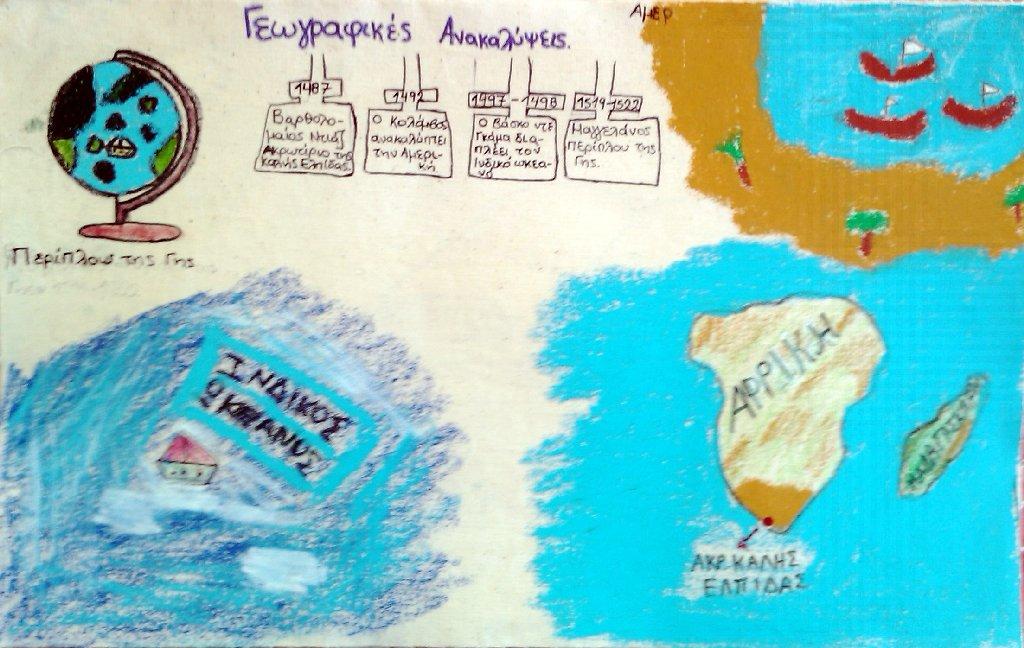 Γεωγραφικές Ανακαλύψεις.
ΑΜΕΡ
1487
Βαρθολο-
μαίος Ντιάζ
Ακρωτήριο της
Καλής Ελπίδας.
1492
Ο Κολόμβος
ανακαλύπτει
την Αμερι-
κή
1997-1498
Ο Βάσκο ντε
Γκάμα δια-
πλέει τον
Ινδικό ωκεα-
νό
1519-1522
Μαγγελάνος
Περίπλου της
Γης.
Περίπλου της Γης
ΙΝΔΙΚΟΣ
ΩΚΕΑΝΟΣ
ΑΦΡΙΚΗ
ΑΚΡ. ΚΑΛΗΣ
ΕΛΠΙΔΑΣ